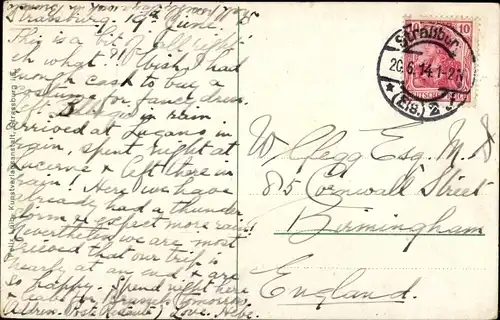 Strassburg. 19th June.
This is a bit of all right
eh what?! I wish I had
enough cash to buy a
costume for fancy dress.
Left in rain
arrived at Lugano in
rain, spent night at
Lucerne & left there in
rain! Here we have
already had a thunder
storm & expect more rain!
Nevertheless we are most
grieved that our trip is
nearly at an end & are
so happy. Spend night here
& leave for Brussels tomorrow.
(Address Poste Restante) Love. Hebe.
Felix Luib, Kunstverlagsanstalt, Strassburg i. E.
10
Straßburg
20.6.14.1-2N
* (Els.) 2
W Clegg Esq. M.D
85 Cornwall Street
Birmingham
England.